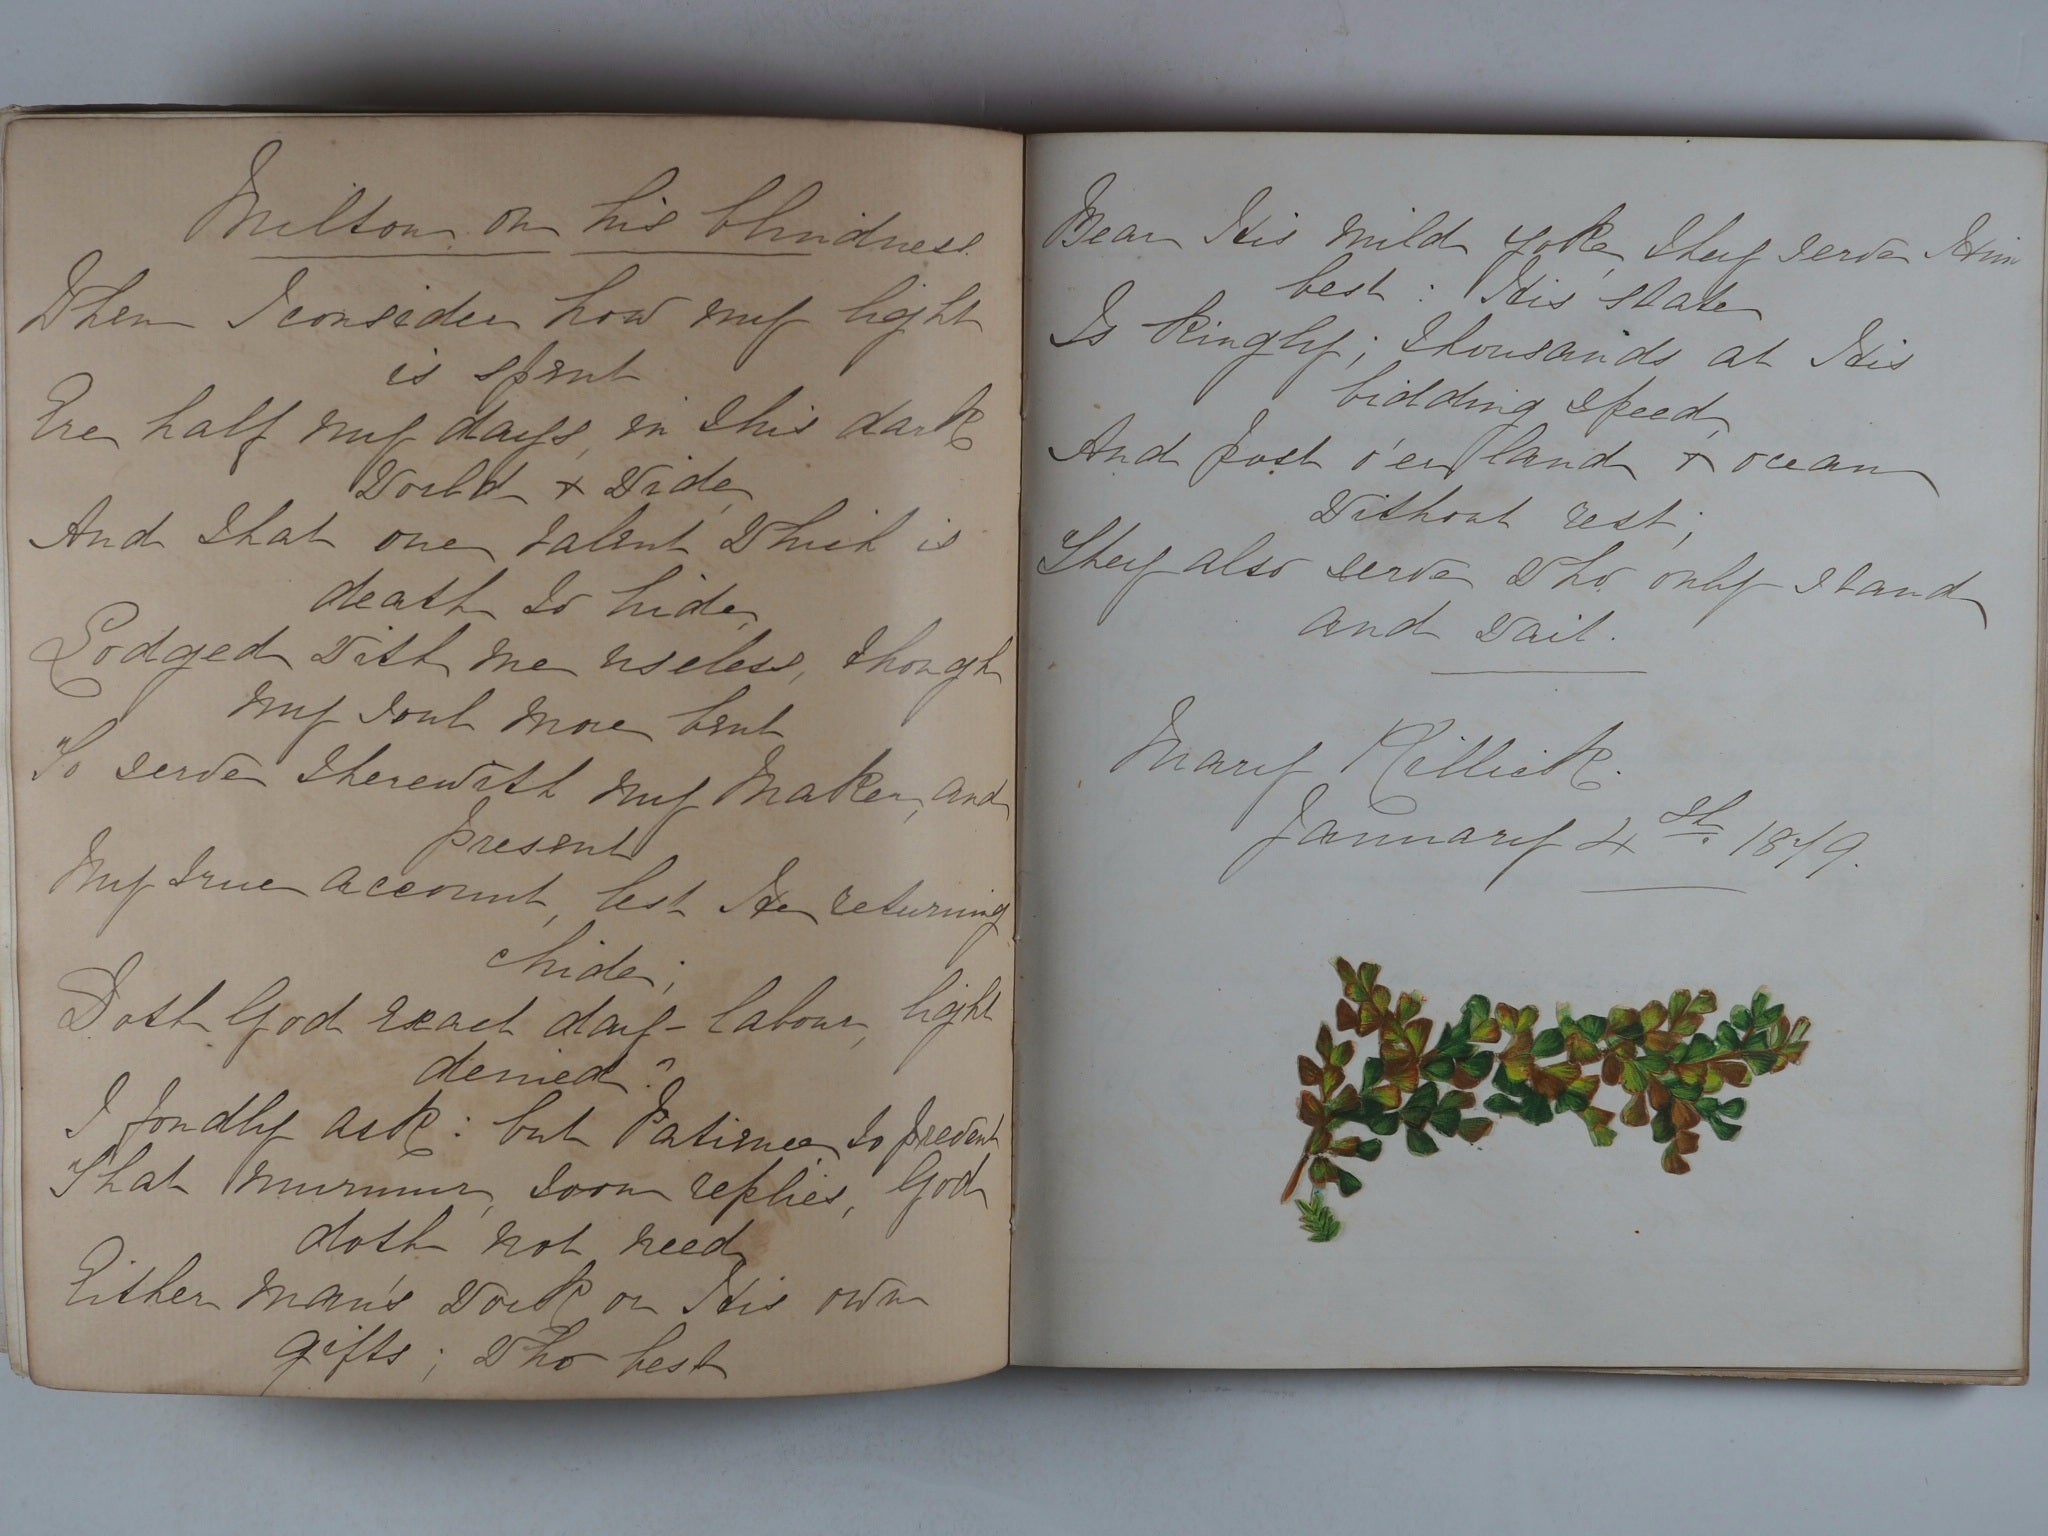 Milton on his blindness.
When I consider how my light
is spent
Ere half my days, in this dark
World & Wide,
And that one talent which is
death to hide,
Lodged with me useless, though
my soul more bent
To serve therewith my Maker, and
present
My true account, lest He returning
chide;
Doth God exact day-labour, light
denied?
I fondly ask: but Patience to prevent
That murmur, soon replies, God
doth not need
Either man's work or His own
gifts; Who best
Bear His mild yoke, they serve Him
best: His state
Is kingly; thousands at His
bidding speed,
And post o'er land & ocean
without rest;
They also serve who only stand
and wait.
Mary Killick.
January 4th. 1879.